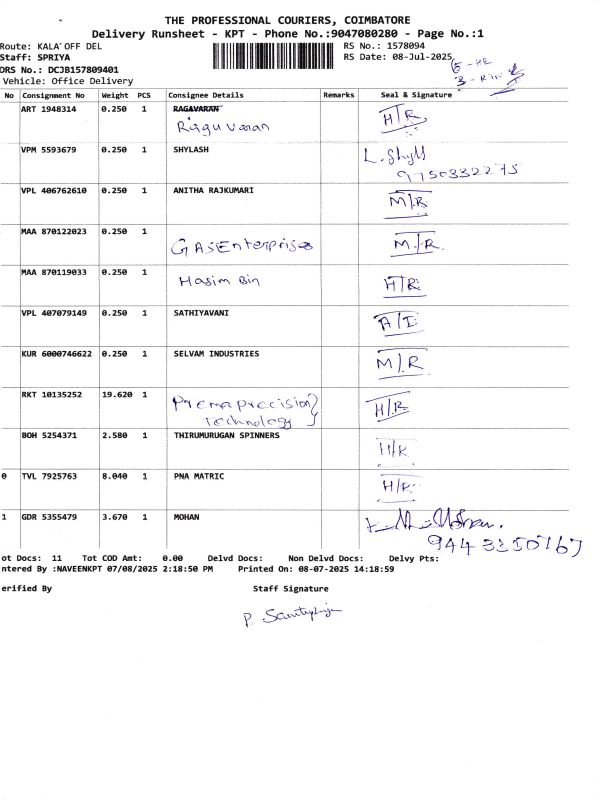 THE PROFESSIONAL COURIERS, COIMBATORE
Delivery Runsheet - KPT - Phone No.:9047080280 - Page No.:1
Route: KALA OFF DEL RS No.: 1578094
Staff: SPRIYA RS Date: 08-Jul-2025
DRS No.: DCJB157809401
Vehicle: Office Delivery
No Consignment No Weight PCS Consignee Details Remarks Seal & Signature
ART 1948314 0.250 1 RAGAVARAN H/R
Raguvaran
VPM 5593679 0.250 1 SHYLASH L. Shyll
9750332275
VPL 406762610 0.250 1 ANITHA RAJKUMARI M/R
MAA 870122023 0.250 1 M/R
GASEnterprises
MAA 870119033 0.250 1 Hasim Bin H/R
VPL 407079149 0.250 1 SATHIYAVANI A/I
KUR 6000746622 0.250 1 SELVAM INDUSTRIES M/R
RKT 10135252 19.620 1 Premaprecision H/R
Technology
BOH 5254371 2.580 1 THIRUMURUGAN SPINNERS H/R
0 TVL 7925763 8.040 1 PNA MATRIC H/R
1 GDR 5355479 3.670 1 MOHAN
ot Docs: 11 Tot COD Amt: 0.00 Delvd Docs: Non Delvd Docs: Delvy Pts:
ntered By :NAVEENKPT 07/08/2025 2:18:50 PM Printed On: 08-07-2025 14:18:59
erified By Staff Signature